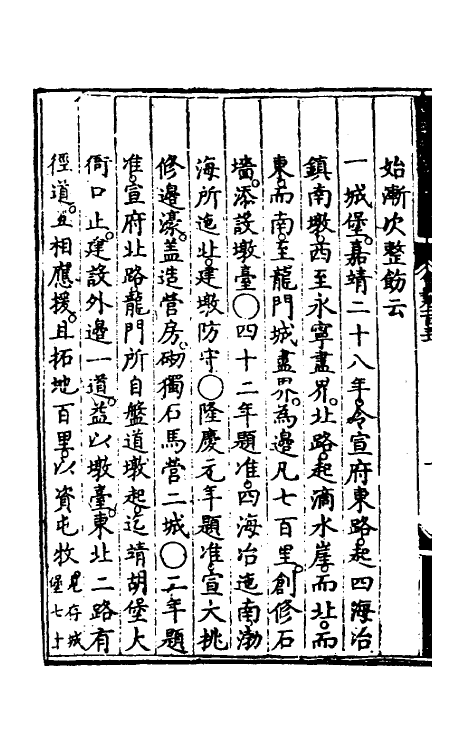 始漸次整飭云
一城堡嘉靖二十八年令宣府東路起四海冶
鎮南墩西至永寧盡界北路起滴水崖而北而
東而南至龍門城盡界為邊凡七百里創修石
墻添設墩臺〇四十二年題准四海冶迤南渤
海所迤北建墩防守〇隆慶元年題准宣大挑
修邊濠蓋造營房砌獨石馬營二城〇二年題
准宣府北路龍門所自盤道墩起迄靖胡堡大
衙口止建設外邊一道益以墩臺東北二路有
徑道互相應援且拓地百里以資屯牧見存城
堡七十